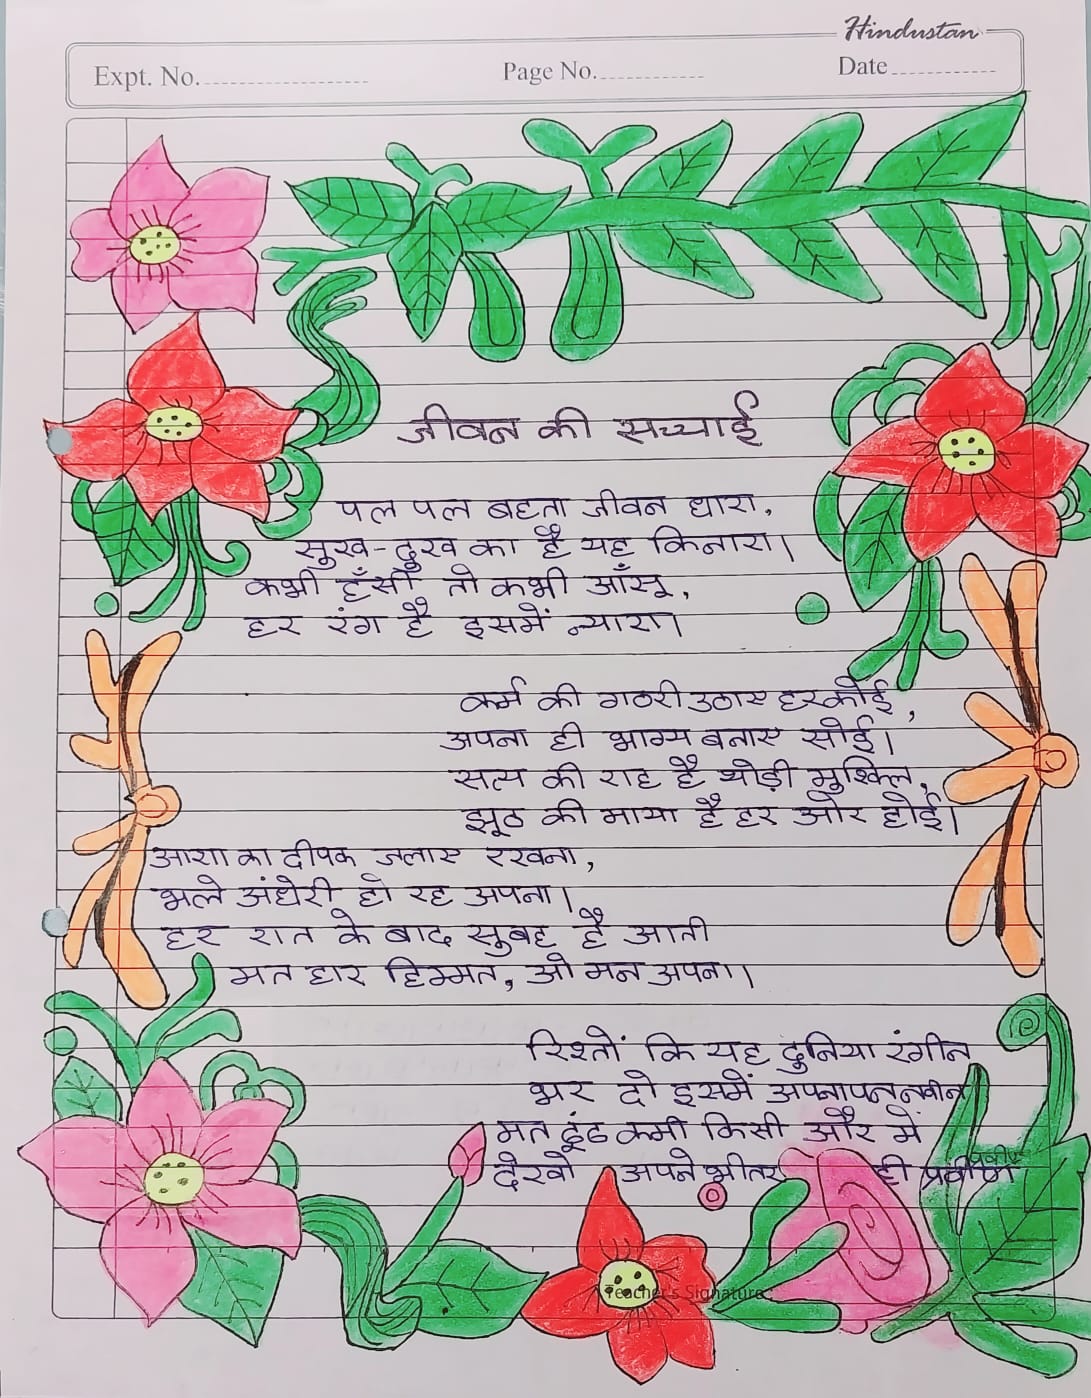 Hindustan
Expt. No.
Page No.
Date
जीवन की सच्चाई
पल पल बहता जीवन धारा,
सुख-दुख का है यह किनारा।
कभी हँसी तो कभी आँसू,
हर रंग है इसमें न्यारा।
कर्म की गठरी उठाए हर कोई,
अपना ही भाग्य बनाए सोई।
सत्य की राह है थोड़ी मुश्किल,
झूठ की माया है हर ओर होई।
आशा का दीपक जलाए रखना,
भले अंधेरी हो रह अपना।
हर रात के बाद सुबह है आती
मत हार हिम्मत, ओ मन अपना।
रिश्तों कि यह दुनिया रंगीन
भर दो इसमें अपनापन नवीन
मत ढूंढ कमी किसी और में
देखो अपने भीतर ही प्रवीण
प्रवीण
Teacher's Signature :